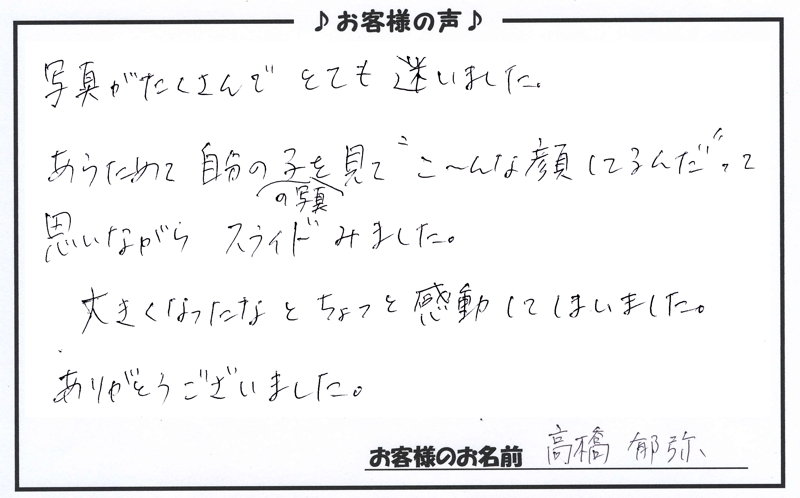 ♪お客様の声♪
写真がたくさんで とても迷いました。
あらためて 自分の子の写真を見て“こ〜んな顔してるんだ”って
思いながら スライドみました。
大きくなったなとちょっと感動してしまいました。
ありがとうございました。
お客様のお名前 高橋 郁弥